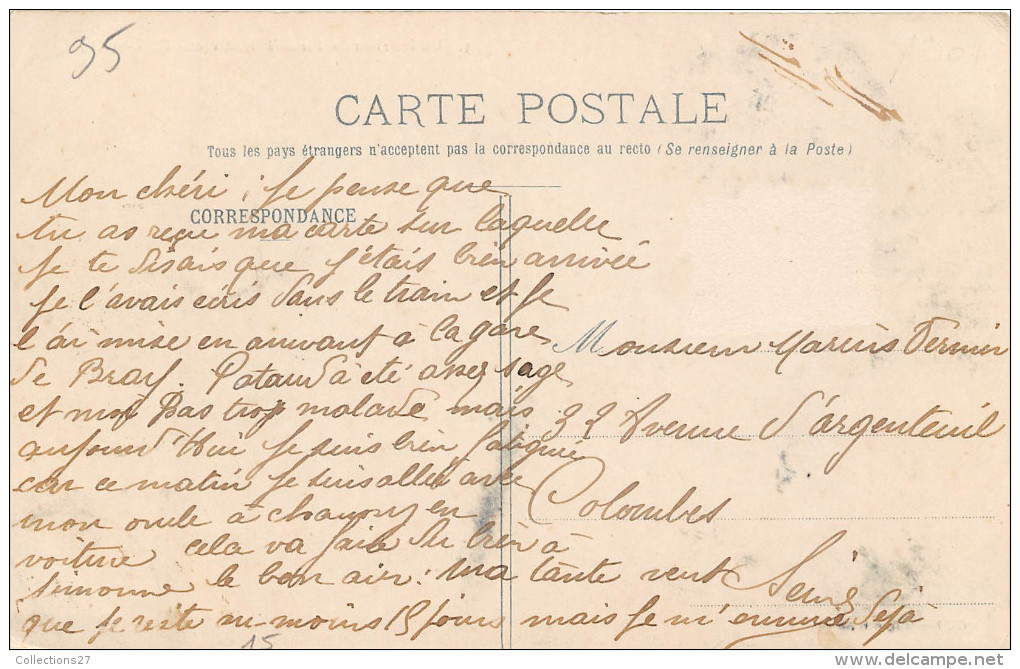 95
CARTE POSTALE
Tous les pays étrangers n'acceptent pas la correspondance au recto (Se renseigner à la Poste)
CORRESPONDANCE
Mon chéri, Je pense que
tu as reçu ma carte sur laquelle
Je te disais que j'étais bien arrivée
Je l'avais écris dans le train et Je
l'ai mise en arrivant à la gare
de Bray. Pataud à été assez sage
et moi pas trop malade mais
aujourd'hui Je suis bien fatiguée
car ce matin Je suis allée avec
mon oncle à en
voiture cela va faire du bien à
Simonne le bon air: Ma tante veut
que Je reste au moins 15 jours mais Je m'ennuie déjà
15
Monsieur Marius
32 Avenue d'argenteuil
Colombes
Seine
Collections27
http://www.delcampe.net